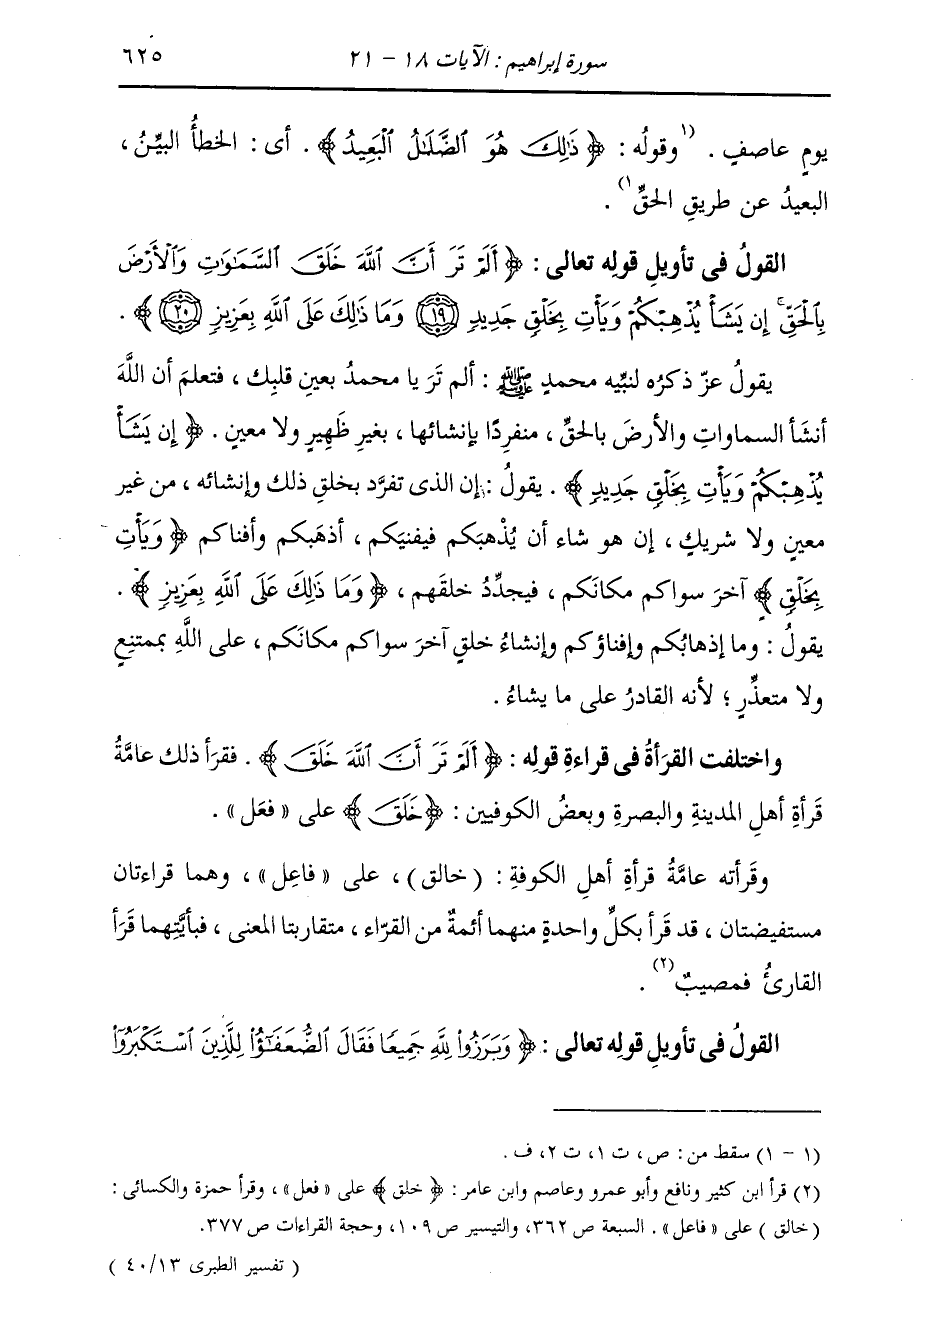 سورة إبراهيم : الآيات ١٨ - ٢١ ٦٢٥
يومٍ عاصفٍ . (١وقولُه : ﴿ ذَٰلِكَ هُوَ ٱلضَّلَٰلُ ٱلْبَعِيدُ ﴾ . أى : الخطأُ البيِّنُ ،
البعيدُ عن طريقِ الحقِّ١) .
القولُ فى تأويلِ قولِه تعالى : ﴿ أَلَمْ تَرَ أَنَّ ٱللَّهَ خَلَقَ ٱلسَّمَٰوَٰتِ وَٱلْأَرْضَ
بِٱلْحَقِّ ۚ إِن يَشَأْ يُذْهِبْكُمْ وَيَأْتِ بِخَلْقٍ جَدِيدٍ ۝١٩ وَمَا ذَٰلِكَ عَلَى ٱللَّهِ بِعَزِيزٍ ۝٢٠ ﴾ .
يقولُ عزّ ذكرُه لنبيِّه محمدٍ ﷺ : ألم تَرَ يا محمدُ بعينِ قلبِك ، فتعلمَ أن اللَّهَ
أنشَأ السماواتِ والأرضَ بالحقِّ ، منفردًا بإنشائها ، بغيرِ ظَهِيرٍ ولا معينٍ . ﴿ إِن يَشَأْ
يُذْهِبْكُمْ وَيَأْتِ بِخَلْقٍ جَدِيدٍ ﴾ . يقولُ : إن الذى تفرَّد بخلقِ ذلك وإنشائه ، من غيرِ
معينٍ ولا شريكٍ ، إن هو شاء أن يُذْهبَكم فيفنيَكم ، أذهَبكم وأفناكم ﴿ وَيَأْتِ
بِخَلْقٍ ﴾ آخرَ سواكم مكانَكم ، فيجدِّدُ خلقَهم ، ﴿ وَمَا ذَٰلِكَ عَلَى ٱللَّهِ بِعَزِيزٍ ﴾ .
يقولُ : وما إذهابُكم وإفناؤكم وإنشاءُ خلقٍ آخرَ سواكم مكانَكم ، على اللَّهِ بممتنعٍ
ولا متعذِّرٍ ؛ لأنه القادرُ على ما يشاءُ .
واختلفت القرأةُ فى قراءةِ قولِه : ﴿ أَلَمْ تَرَ أَنَّ ٱللَّهَ خَلَقَ ﴾ . فقرَأ ذلك عامَّةُ
قَرأةِ أهلِ المدينةِ والبصرةِ وبعضُ الكوفيين : ﴿ خَلَقَ ﴾ على « فعَل » .
وقرأته عامَّةُ قرأةِ أهلِ الكوفةِ : ( خالق ) ، على « فاعِل » ، وهما قراءتان
مستفيضتان ، قد قرَأ بكلِّ واحدةٍ منهما أئمةٌ من القرّاء ، متقاربتا المعنى ، فبأيَّتِهما قرَأ
القارئُ فمصيبٌ(٢) .
القولُ فى تأويلِ قولِه تعالى : ﴿ وَبَرَزُوا۟ لِلَّهِ جَمِيعًا فَقَالَ ٱلضُّعَفَٰٓؤُا۟ لِلَّذِينَ ٱسْتَكْبَرُوٓا۟
(١ - ١) سقط من : ص ، ت ١ ، ت ٢ ، ف .
(٢) قرأ ابن كثير ونافع وأبو عمرو وعاصم وابن عامر : ﴿ خلق ﴾ على « فعل » ، وقرأ حمزة والكسائى :
( خالق ) على « فاعل » . السبعة ص ٣٦٢ ، والتيسير ص ١٠٩ ، وحجة القراءات ص ٣٧٧.
( تفسير الطبرى ٤٠/١٣ )